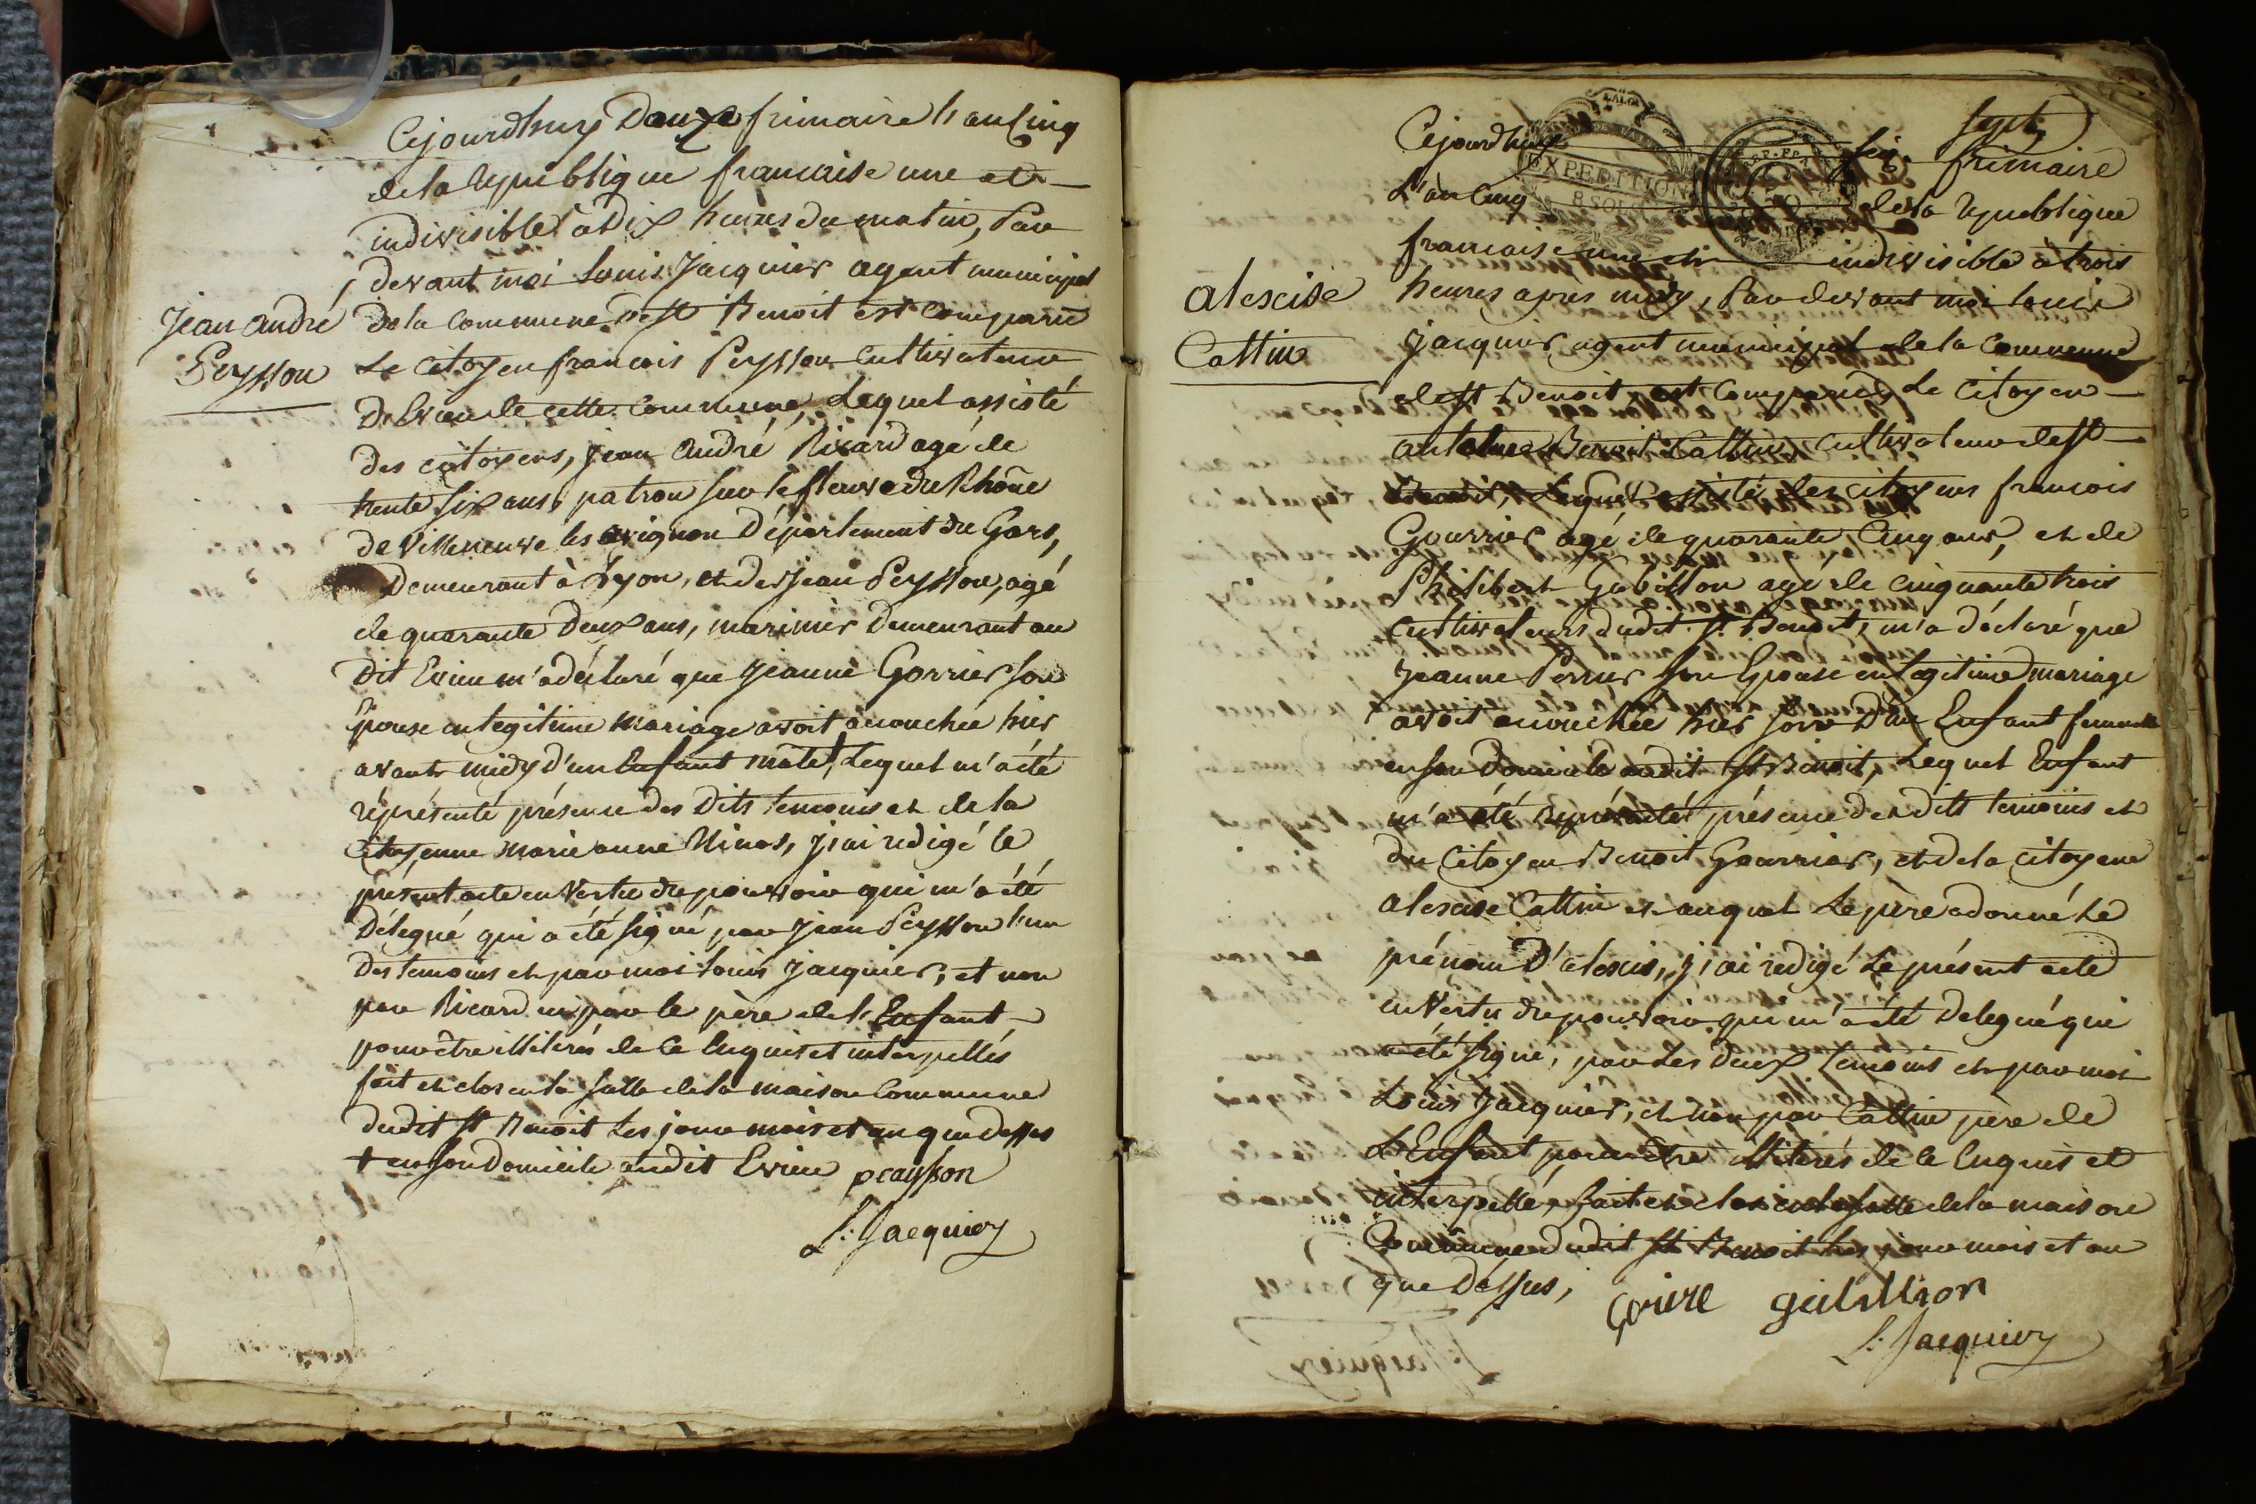 Cejourdhuy Douze frimaire l'an Cinq
de la republique francaise une et
indivisible à Dix heures du matin, Par
devant moi Louis Jacquier agent municipal
Jean andré
Peysson
de la Commune de St Benoit est Comparu
Le Citoyen francois Peysson Cultivateur
D'Evieu de cette Commune, Lequel assisté
des citoyens, Jean andré Ricard agé de
trente six ans, patron sur le fleuve du Rhône
de Villeneuve les avignon Département du Gars,
Demeurant à Lyon, et de Jean Peysson, agé
de quarante Deux ans, marinier Demeurant au
dit Evieu m'a déclaré que Jeanne Gorrier son
Epouse en legitime mariage avoit acouchée hier
avant midy d'un Enfant male +, Lequel m'a été
réprésenté présence des Dits temoins et de la
Citoyenne marie anne Ninos, j'ai redigé le
présent acte en Vertu du pouvoir qui m'a été
Délegué qui a été signé par Jean Peysson l'un
des temoins et par moi Louis Jacquier, et non
par Ricard ni par le père de l'Enfant
pour être illiterés de ce Enquis et interpellés
fait et clos en la salle de la maison Commune
dudit St Benoit les jour mois et an que dessus
+ en son Domicile audit Evieu peaysson
L: Jacquier
sept
Cejourdhuy six frimaire
L'an Cinq de la republique
francaise une et indivisible à trois
alescise
Cattin
heures après midy, Par devant moi Louis
Jacquier agent municipal de la Commune
de St Benoit, est Comparu Le Citoyen
antoine Benoit Cattin, Cultivateur de St
Benoit, Lequel assisté des citoyens francois
Gourrier agé de quarante Cinq ans, et de
Philibert Gubillon agé de Cinquante trois
Cultivateurs dudit St Benoit, m'a déclaré que
Jeanne Perrier son Epouse en legitime mariage
avoit acouchée hier soir D'un Enfant femmelle
en son Domicile audit St Benoit, Lequel Enfant
m'a été réprésenté présence des dits temoins et
du Citoyen Benoit Gourrier, et de la citoyene
alescise Cattin et auquel Le père a donné Le
prénom D'alexis, j'ai redigé Le présent acte
en Vertu du pouvoir qui m'a été Délegué qui
a été signé, par Les Deux temoins et par moi
Louis Jacquier, et non par Cattin père de
L'Enfant pour être illiterés de ce Enquis et
interpellé, fait et clos en la salle de la maison
Commune dudit St Benoit les jour mois et an
que Dessus,
gorire gubillion
L: Jacquier
EXPEDITION
8 SOLS
REP. FRA.